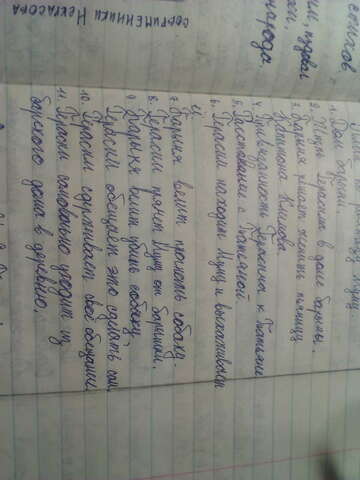 современники Некрасова
народа
1. Дом барыни.
2. Жизнь Герасима в доме барыни.
3. Барыня решает женить пьяницу
Капитона Климова.
4. Привязанность Герасима к Татьяне
5. Расставание с Татьяной
6. Герасим находит Муму и выхаживает
её
7. Барыня велит прогнать собаку.
8. Герасим прячет Муму от барыни.
9. Барыня велит убить собаку,
Герасим обещает это сделать сам.
10. Герасим сдерживает своё обещание
11. Герасим самовольно уходит из
барского дома в деревню.